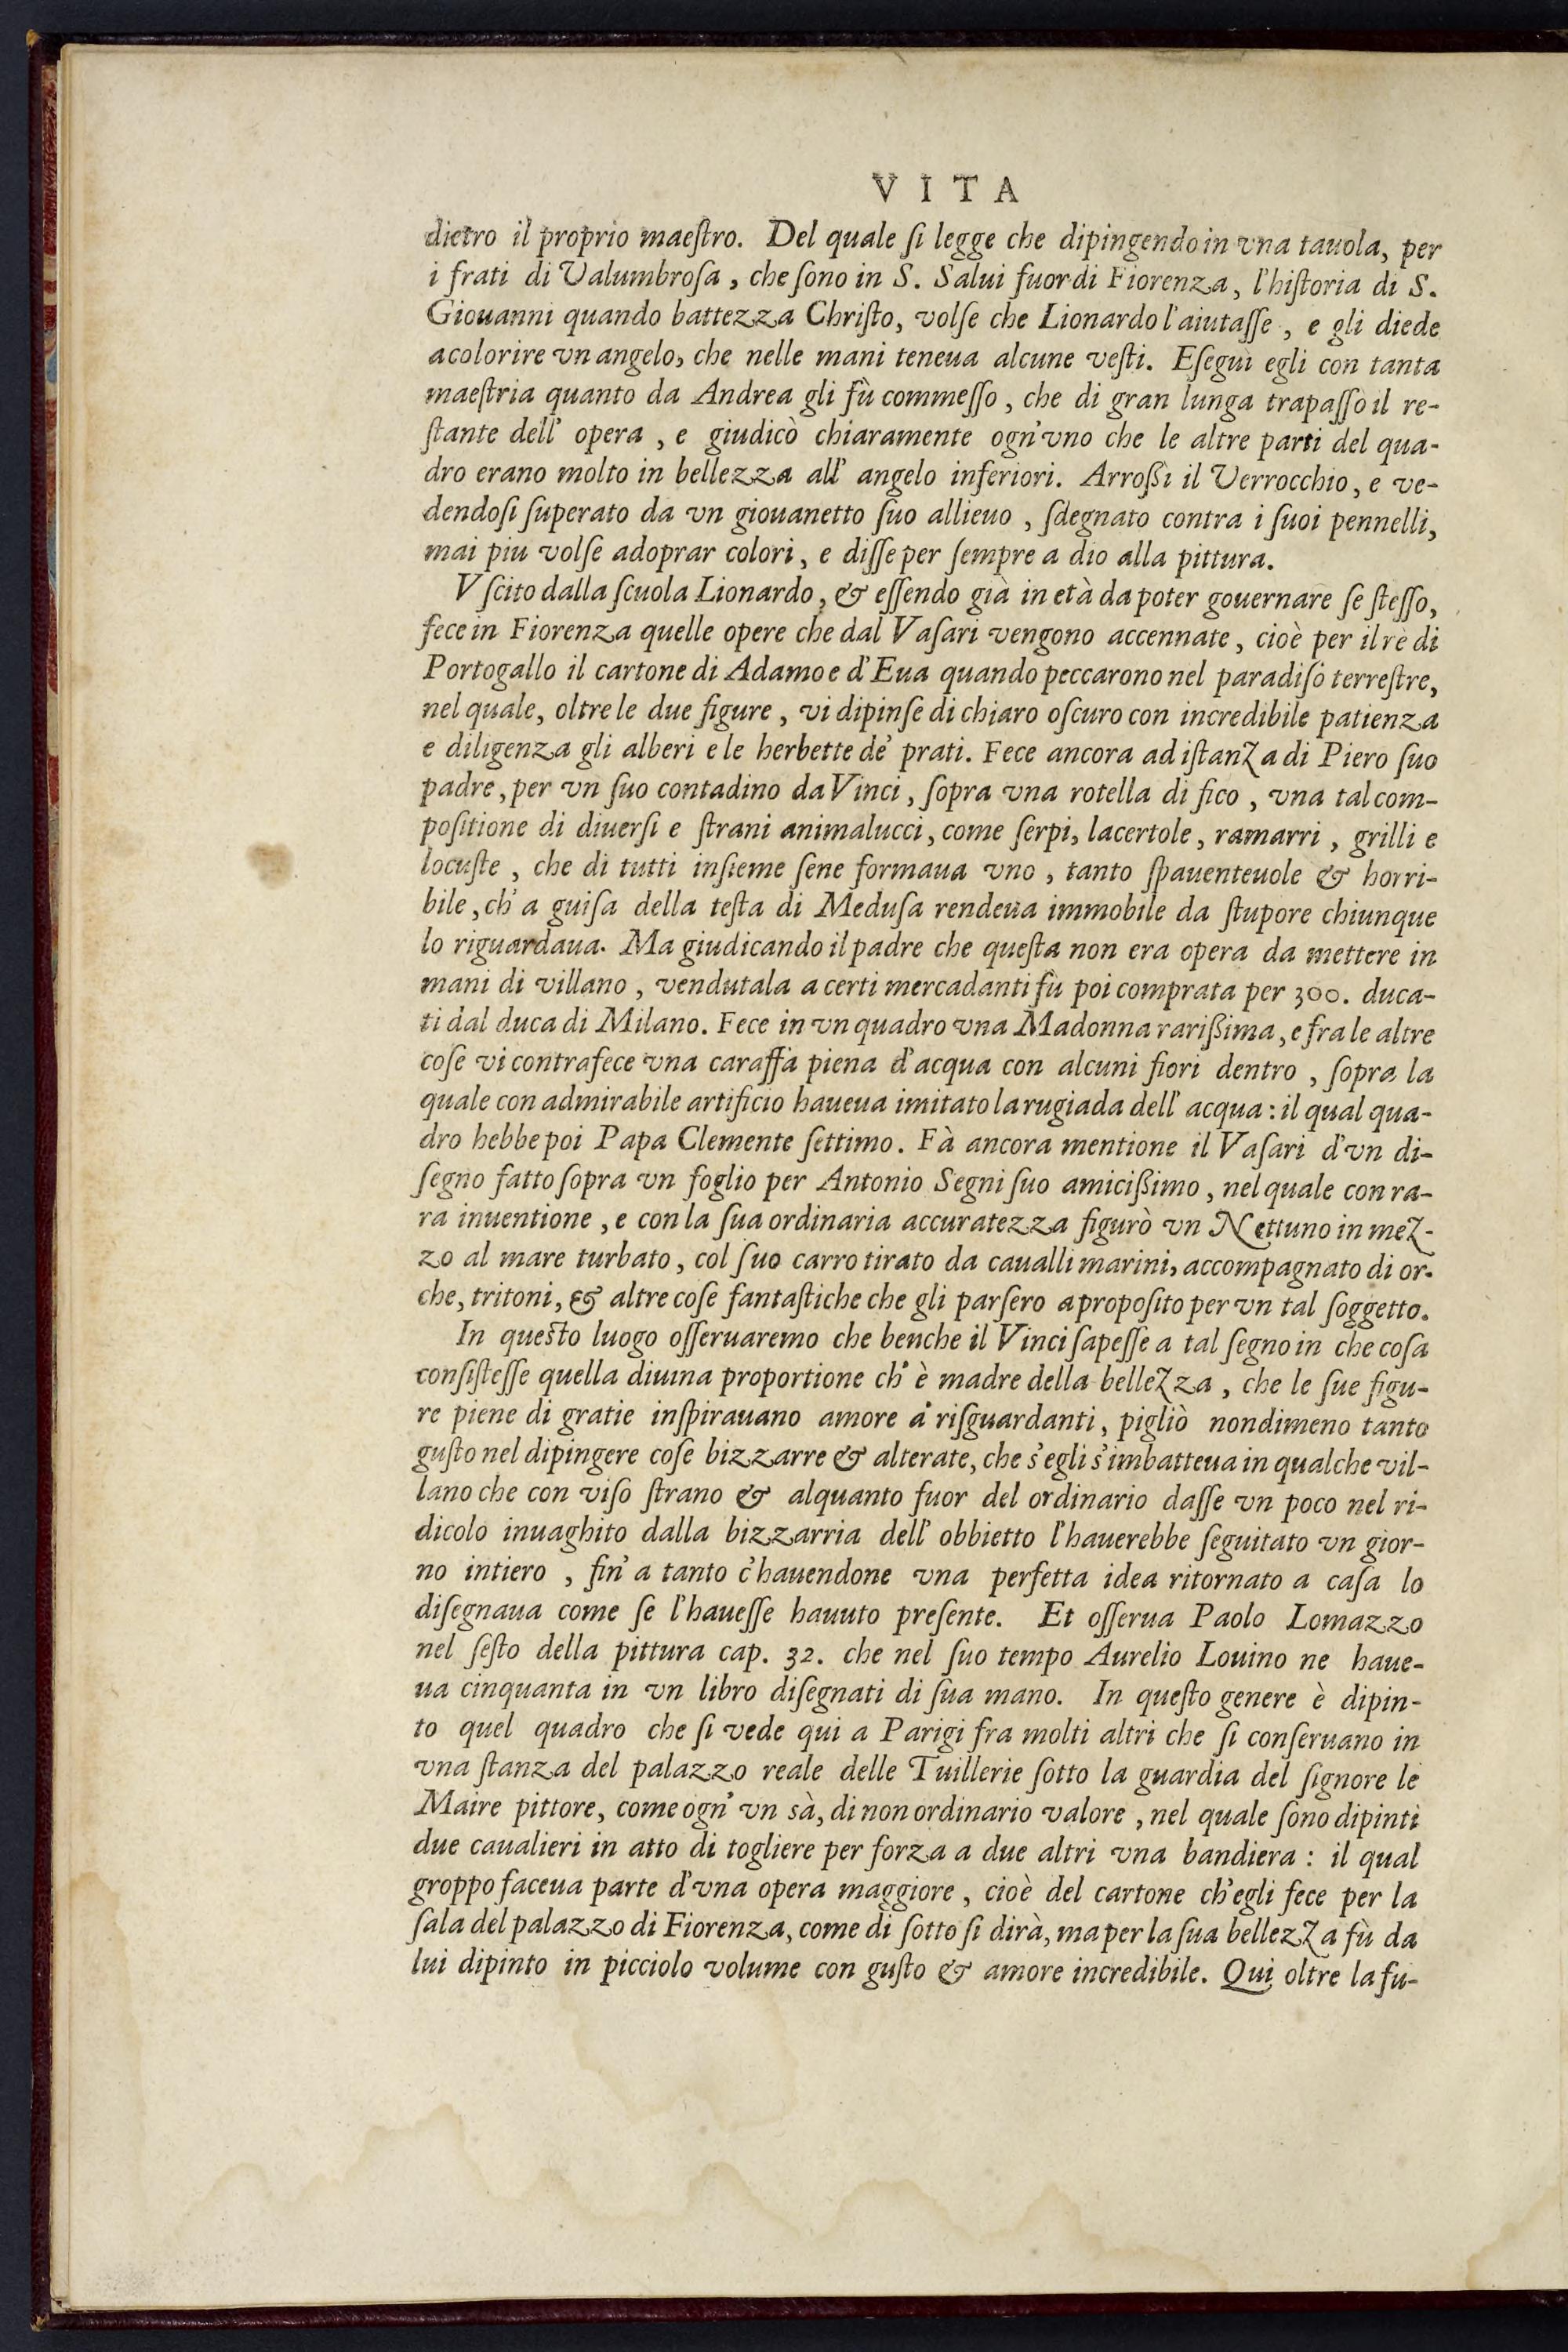 VITA
dietro il proprio maeſtro. Del quale ſi legge che dipingendo in vna tauola, per
i frati di Valumbroſa, che ſono in S. Salui fuor di Fiorenza, l'hiſtoria di S.
Giouanni quando battezza Chriſto, volſe che Lionardo l'aiutaſſe, e gli diede
a colorire vn angelo, che nelle mani teneua alcune veſti. Eſeguì egli con tanta
maeſtria quanto da Andrea gli fù commeſſo, che di gran lunga trapaſſò il re-
ſtante dell' opera, e giudicò chiaramente ogn'vno che le altre parti del qua-
dro erano molto in bellezza all' angelo inferiori. Arroßì il Verrocchio, e ve-
dendoſi ſuperato da vn giouanetto ſuo allieuo, ſdegnato contra i ſuoi pennelli,
mai piu volſe adoprar colori, e diſſe per ſempre a dio alla pittura.
Vſcito dalla ſcuola Lionardo, & eſſendo già in età da poter gouernare ſe ſteſſo,
fece in Fiorenza quelle opere che dal Vaſari vengono accennate, cioè per il rè di
Portogallo il cartone di Adamo e d'Eua quando peccarono nel paradiſo terreſtre,
nel quale, oltre le due figure, vi dipinſe di chiaro oſcuro con incredibile patienza
e diligenza gli alberi e le herbette de' prati. Fece ancora ad iſtanza di Piero ſuo
padre, per vn ſuo contadino da Vinci, ſopra vna rotella di fico, vna tal com-
poſitione di diuerſi e ſtrani animalucci, come ſerpi, lacertole, ramarri, grilli e
locuſte, che di tutti inſieme ſene formaua vno, tanto ſpauenteuole & horri-
bile, ch' a guiſa della teſta di Meduſa rendeua immobile da ſtupore chiunque
lo riguardaua. Ma giudicando il padre che queſta non era opera da mettere in
mani di villano, vendutala a certi mercadanti fù poi comprata per 300. duca-
ti dal duca di Milano. Fece in vn quadro vna Madonna rarißima, e fra le altre
coſe vi contrafece vna caraffa piena d'acqua con alcuni fiori dentro, ſopra la
quale con admirabile artificio haueua imitato la rugiada dell' acqua: il qual qua-
dro hebbe poi Papa Clemente ſettimo. Fà ancora mentione il Vaſari d'vn di-
ſegno fatto ſopra vn foglio per Antonio Segni ſuo amicißimo, nel quale con ra-
ra inuentione, e con la ſua ordinaria accuratezza figurò vn Nettuno in mez-
zo al mare turbato, col ſuo carro tirato da caualli marini, accompagnato di or-
che, tritoni, & altre coſe fantaſtiche che gli parſero a propoſito per vn tal ſoggetto.
In queſto luogo oſſeruaremo che benche il Vinci ſapeſſe a tal ſegno in che coſa
conſiſteſſe quella diuina proportione ch' è madre della bellezza, che le ſue figu-
re piene di gratie inſpirauano amore a' riſguardanti, pigliò nondimeno tanto
guſto nel dipingere coſe bizzarre & alterate, che s'egli s'imbatteua in qualche vil-
lano che con viſo ſtrano & alquanto fuor del ordinario daſſe vn poco nel ri-
dicolo inuaghito dalla bizzarria dell' obbietto l'hauerebbe ſeguitato vn gior-
no intiero, fin' a tanto c'hauendone vna perfetta idea ritornato a caſa lo
diſegnaua come ſe l'haueſſe hauuto preſente. Et oſſerua Paolo Lomazzo
nel ſeſto della pittura cap. 32. che nel ſuo tempo Aurelio Louino ne haue-
ua cinquanta in vn libro diſegnati di ſua mano. In queſto genere è dipin-
to quel quadro che ſi vede qui a Parigi fra molti altri che ſi conſeruano in
vna ſtanza del palazzo reale delle Tuillerie ſotto la guardia del ſignore le
Maire pittore, come ogn' vn sà, di non ordinario valore, nel quale ſono dipinti
due caualieri in atto di togliere per forza a due altri vna bandiera: il qual
groppo faceua parte d'vna opera maggiore, cioè del cartone ch'egli fece per la
ſala del palazzo di Fiorenza, come di ſotto ſi dirà, ma per la ſua bellezza fù da
lui dipinto in picciolo volume con guſto & amore incredibile. Qui oltre la fu-